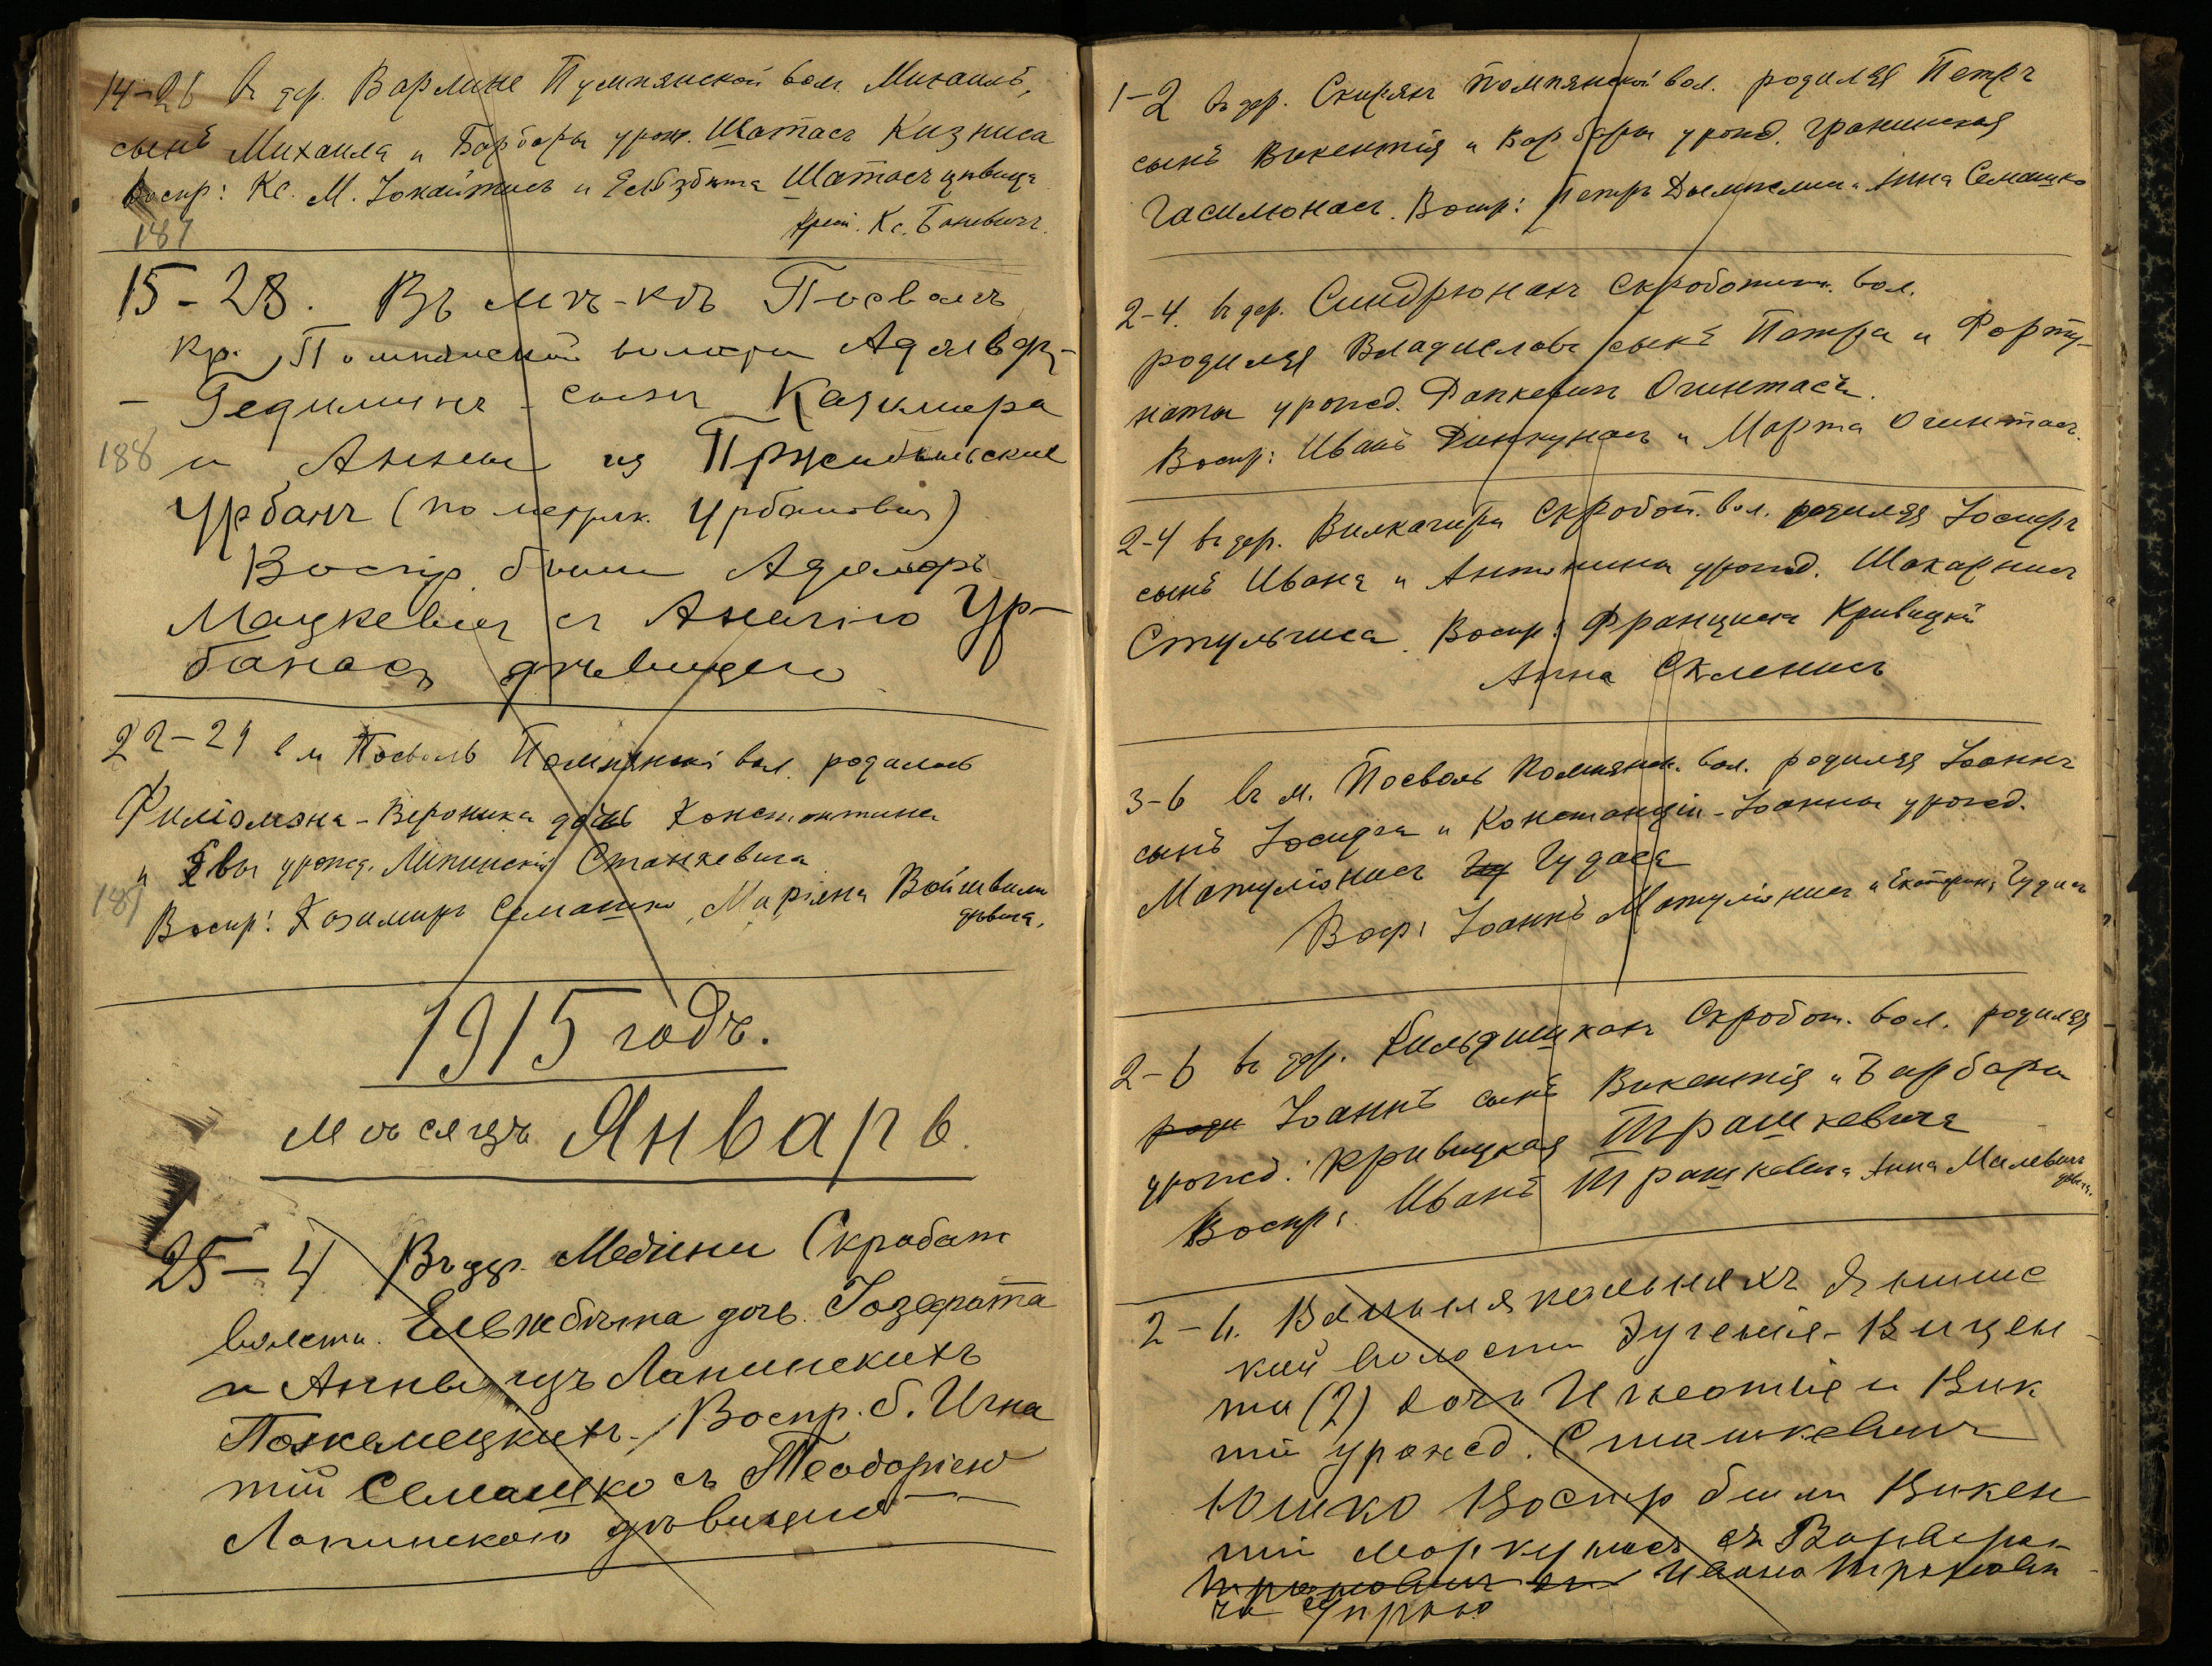 14-26 въ дер. Вармине Пумпянской вол. Михаилъ,
сынъ Михаила и Барбары урож. Шатасъ Кизниса
Воспр: Кс. М. Іокайтисъ и Ельзбѣта Шатасъ дѣвица
187 крест. Кс. Боневичъ.
15-28. Въ мѣ-кѣ Посволь
кр. Помпянской волости Адольфъ-
- Гедиминъ сынъ Казимира
188 и Анны из
Урбанъ (по метрик. Урбановичъ)
Воспр были Адольфъ
Мацкевичъ съ Анелію Ур-
банасъ дѣвицею
22-29 в м Посволь Помпянской вол. родилась
Филомэна-Вероника дочь Константина
и Евы урожд. Липинскій Станкевича
189 Воспр: Казимиръ Семашко, Маріяна Войшвилы
дѣвица.
1915 годъ.
мѣсяцъ Январь.
25-4 Въ дер. Медини Скробат
волости. Ельжбѣта дочь Іозефата
и Анны изъ Лапинскихъ
Воспр. б. Игна
тій Семашко съ Теодорією
Лапинскою дѣвицею
1-2 въ дер. Скирянъ Помпянской вол. родился Петръ
сынъ Викентія и Барбары урожд. Гранинская
Гасилюнасъ. Воспр: Петръ и Анна Семашко
2-4. въ дер. Синдрюнахъ Скроботишк. вол.
родился Владиславъ сынъ Петра и Форту-
наты урожд. Рапкевичъ Огинтасъ.
Воспр: Иванъ Динкунасъ и Марта Огинтасъ.
2-4 въ дер. Скробот. вол. родился Іосифъ
сынъ Ивана и Антонины урожд. Шакарнисъ
Стульгиса. Воспр: Францискъ Кривицкій
Анна Скленисъ
3-6 въ м. Посволь Помпянск. вол. родился Іоаннъ
сынъ Іосифа и Констанціи-Іоанны урожд.
Матуліонисъ Чудаса
Воспр: Іоаннъ Матуліонисъ и Екатерин. Чудасъ
2-6 въ дер. Кильдишкахъ Скробот. вол. родился
Іоаннъ сынъ Викентія и Барбары
урожд: Кривицкая Трашкевича
Воспр: Иванъ Трашкевичъ Анна Милевичъ
дѣвиц.
2-6.
кий волости Эугенія-Вицен
та (2) дочь Игнатія и Вик
тіи урожд. Сташкевичъ
Юшко Воспр были Викен
тій Моркунасъ съ Варварой
Ивана